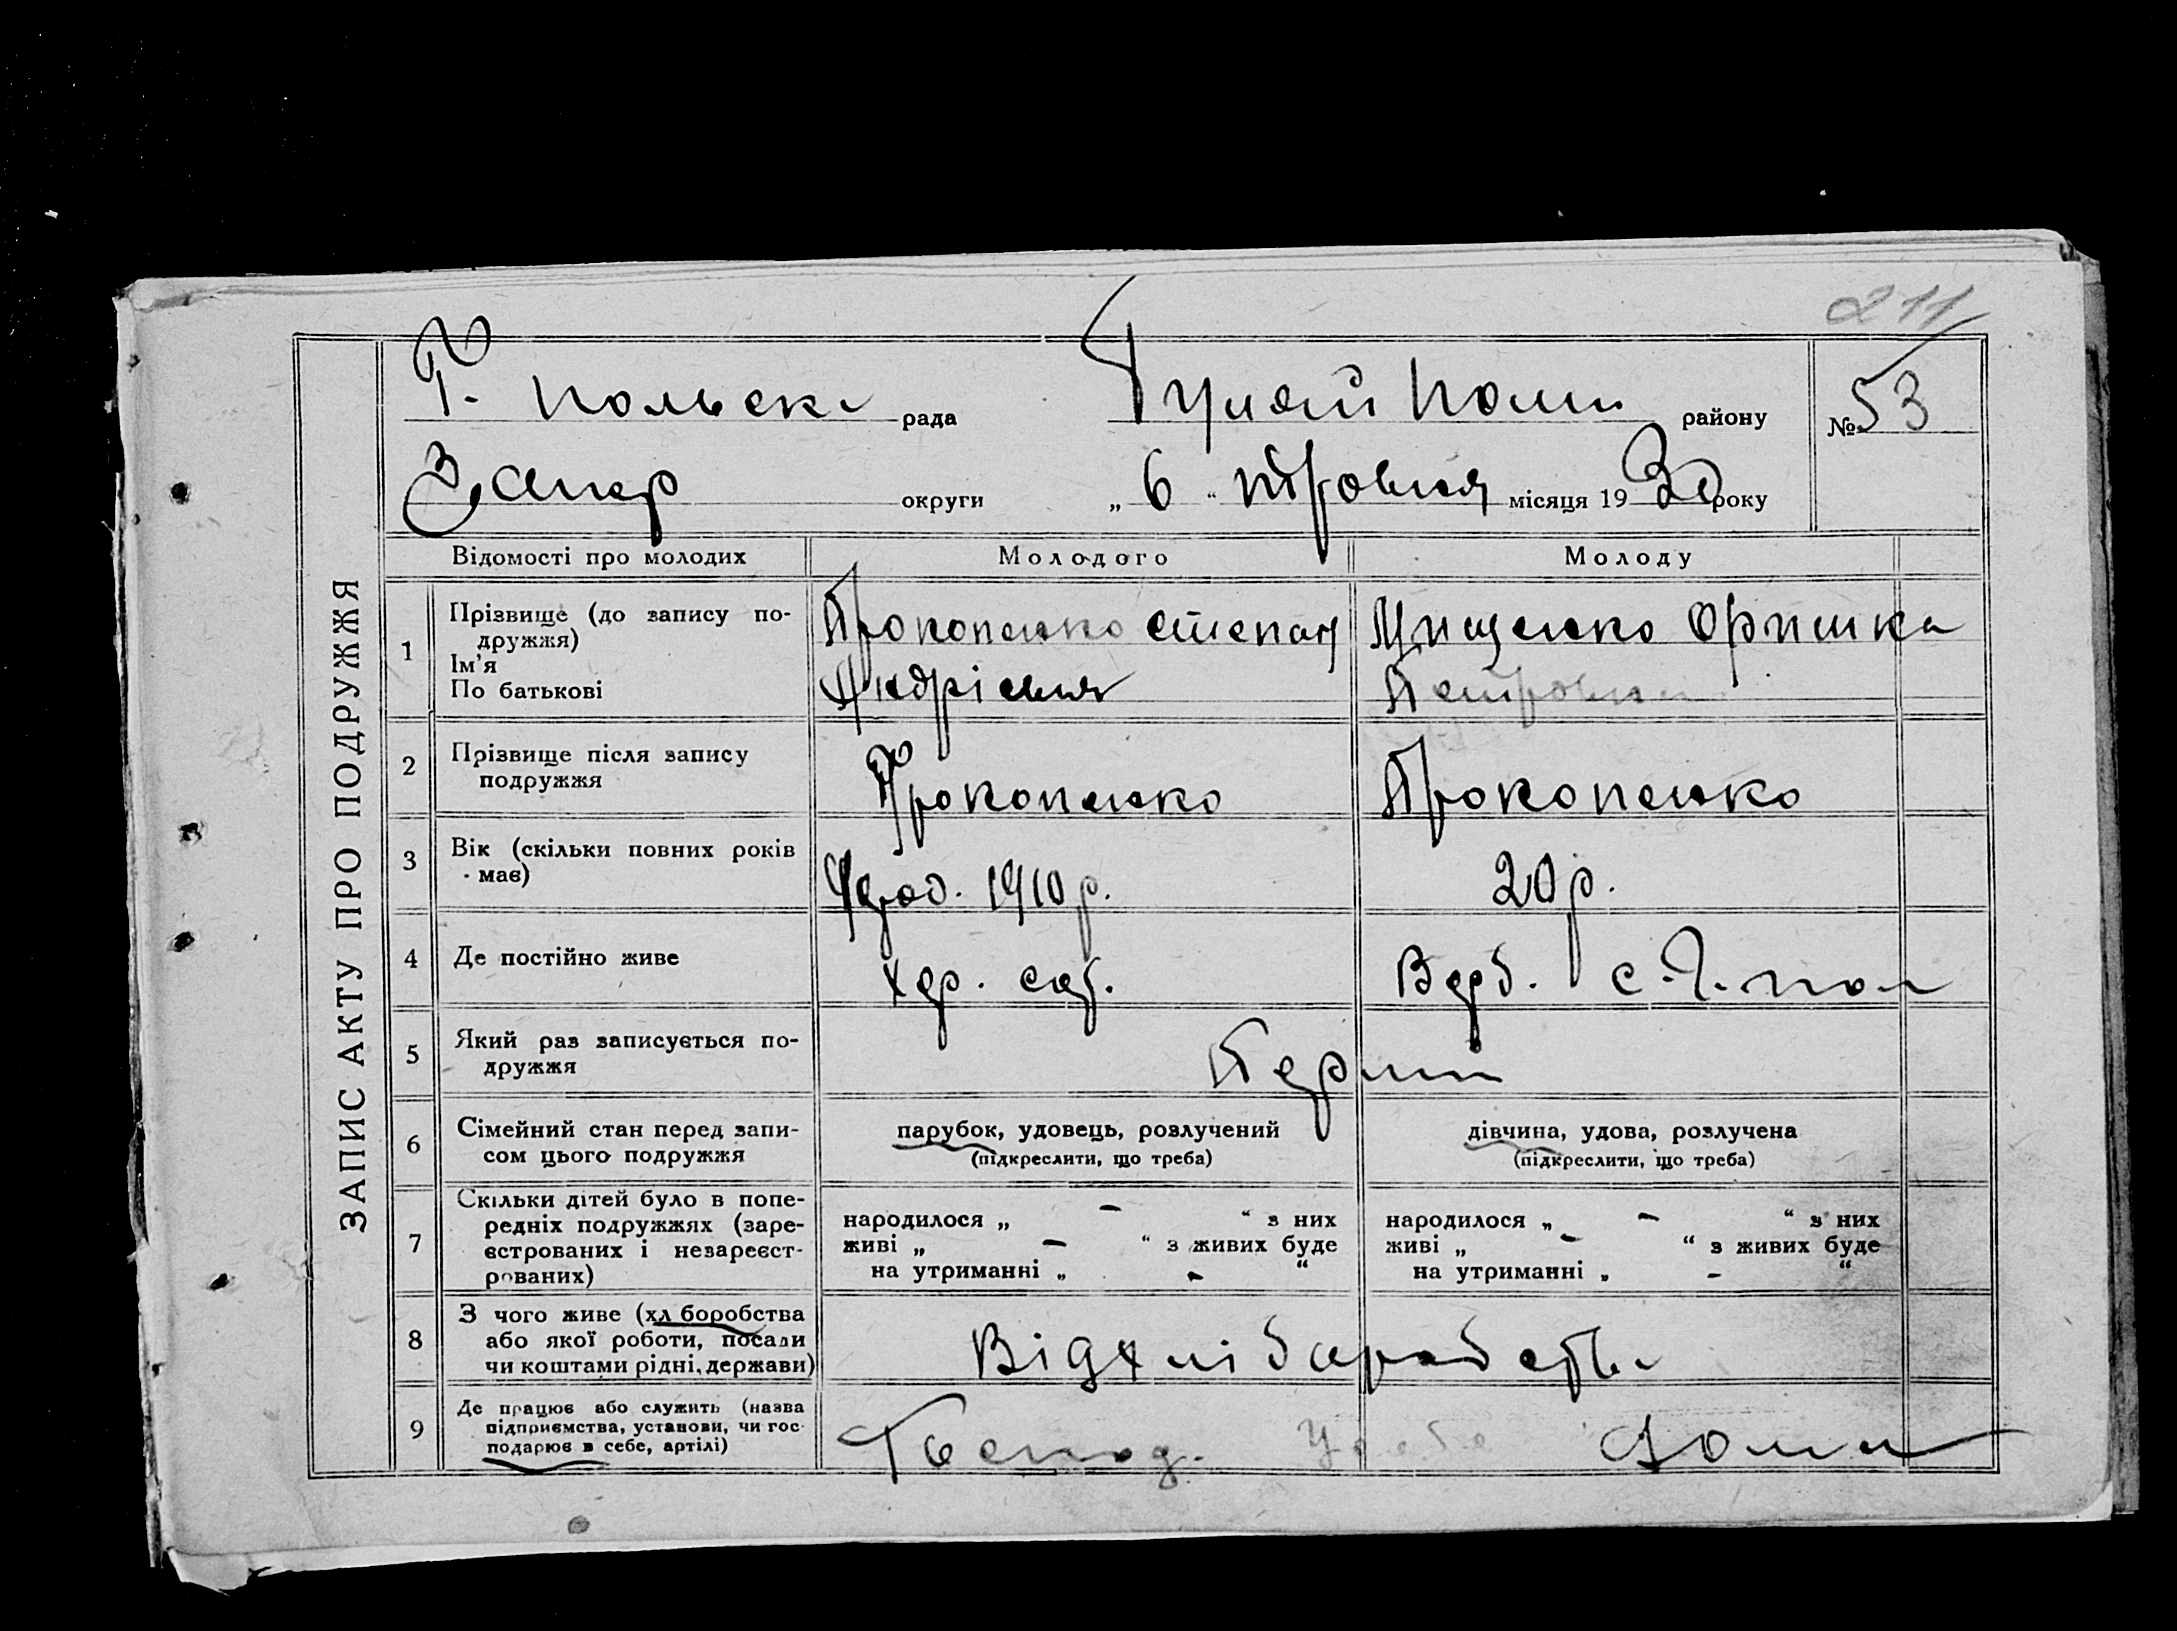 211
Г. Польська рада Гуляй Поль району № 53
Запор округи „ 6 “ травня місяця 1930 року
ЗАПИС АКТУ ПРО ПОДРУЖЖЯ
Відомості про молодих Молодого Молоду
1 Прізвище (до запису по-
дружжя)
Ім'я
По батькові
Прокопенко Степан
Андрієвич
Оришка
Петровна
2 Прізвище після запису
подружжя
Прокопенко Прокопенко
3 Вік (скільки повних років
має)
1910 р. 20 р.
4 Де постійно живе
Хер. Верб. с. Г. пол
5 Який раз записується по-
дружжя
Перши
6 Сімейний стан перед запи-
сом цього подружжя
парубок, удовець, розлучений
(підкреслити, що треба)
дівчина, удова, розлучена
(підкреслити, що треба)
7 Скільки дітей було в попе-
редніх подружжях (заре-
єстрованих і незареєст-
рованих)
народилося „ – “ з них
живі „ – “ з живих буде
на утриманні „ – “
народилося „ – “ з них
живі „ – “ з живих буде
на утриманні „ – “
8 З чого живе (хл боробства
або якої роботи, посади
чи коштами рідні, держави)
Від хліборобства
9 Де працює або служить (назва
підприємства, установи, чи гос-
подарює в себе, артілі)
Господ. У себе Дома